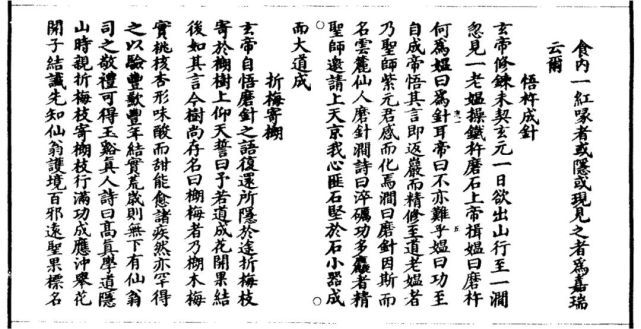 食内一紅㖨者或隱或現見之者爲嘉瑞
云爾
悟杵成針
玄帝修鍊未契玄元一日欲出山行至一澗
忽見一老媪操鐵杵磨石上帝揖媪曰磨杵
何爲媪曰爲針耳帝曰不亦難乎媪曰功至
自成帝悟其言即返巖而精修至道老媪者
乃聖師紫元君感而化焉澗曰磨針因斯而
名雲麓仙人磨針澗詩曰淬礪功多麤者精
聖師邀請上天京我心匪石堅於石小器成
而大道成
折梅寄榔
玄帝自悟磨針之語復還所隱於途折梅枝
寄於榔樹上仰天誓曰予若道成花開果結
後如其言今樹尚存名曰榔梅者乃榔木梅
實桃核杏形味酸而甜能愈諸疾然亦罕得
之以驗豐歉豐年結實荒歲則無下有仙翁
司之敬禮可得玉谿真人詩曰高真學道隱
山時親折梅枝寄榔枝行滿功成應沖舉花
開子結讖先知仙翁護境百邪遠聖果標名